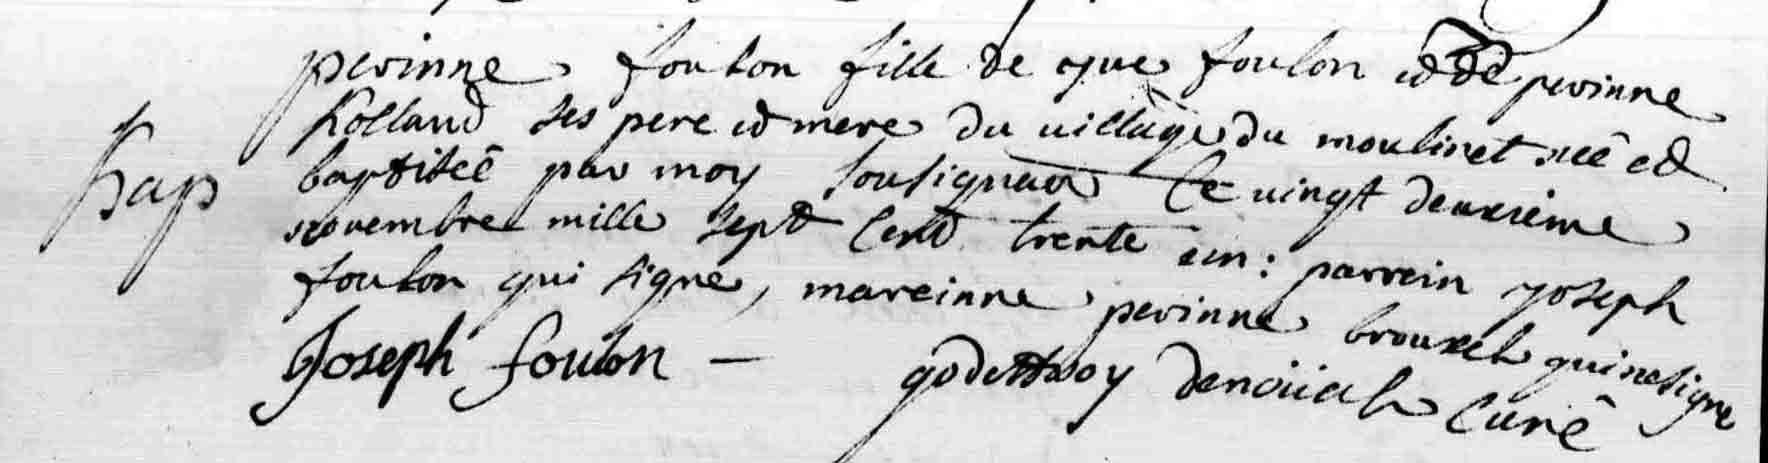 perinne foulon fille de yve foulon et de perinne
Rolland ses pere et mere du village du moulinet neê et
bap
baptiseê par moy sousignant Ce vingt deuxieme
novembre mille sept Cent trente un : parrein joseph
foulon qui signe, mareinne perinne brouxel qui ne signe
Joseph foulon — denoual Curê